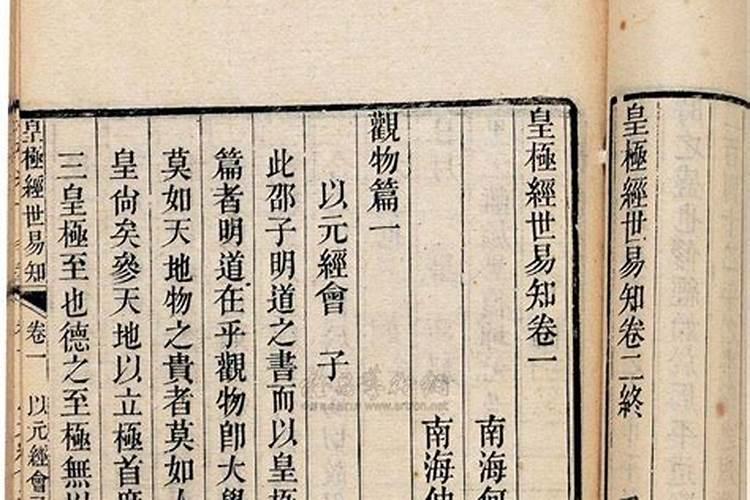 皇極經世易知卷二終
皇極經世易知卷一
南海何
南海仲
觀物篇一
以元經會 子
此邵子明道之書而以皇極
篇者明道在乎觀物卽大學
莫如天地物之貴者莫如人
皇尙矣參天地以立極首
三皇極至也德之至極無以
皇極經世易知 卷一 以元經會